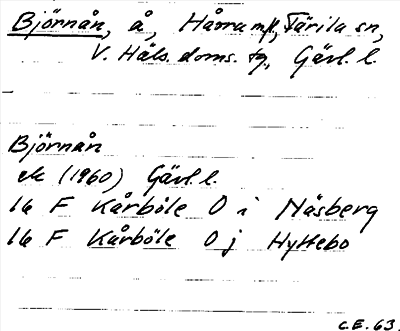 Björnån, å, Hårra mfl, Färila sn,
V. Häls. doms. fg., Gävl. l.
Björnån
ek (1960) Gävl. l.
16 F Kårböle O i Näsberg
16 F Kårböle O j Hyttebo
C.E. 63.